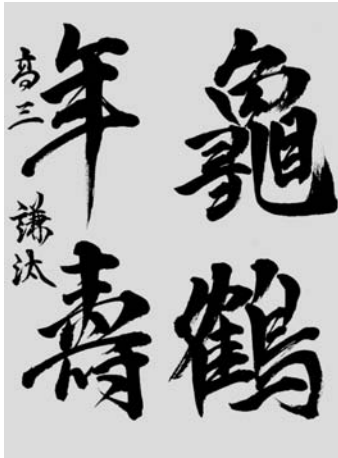 龜鶴
年壽
高三 謙汰